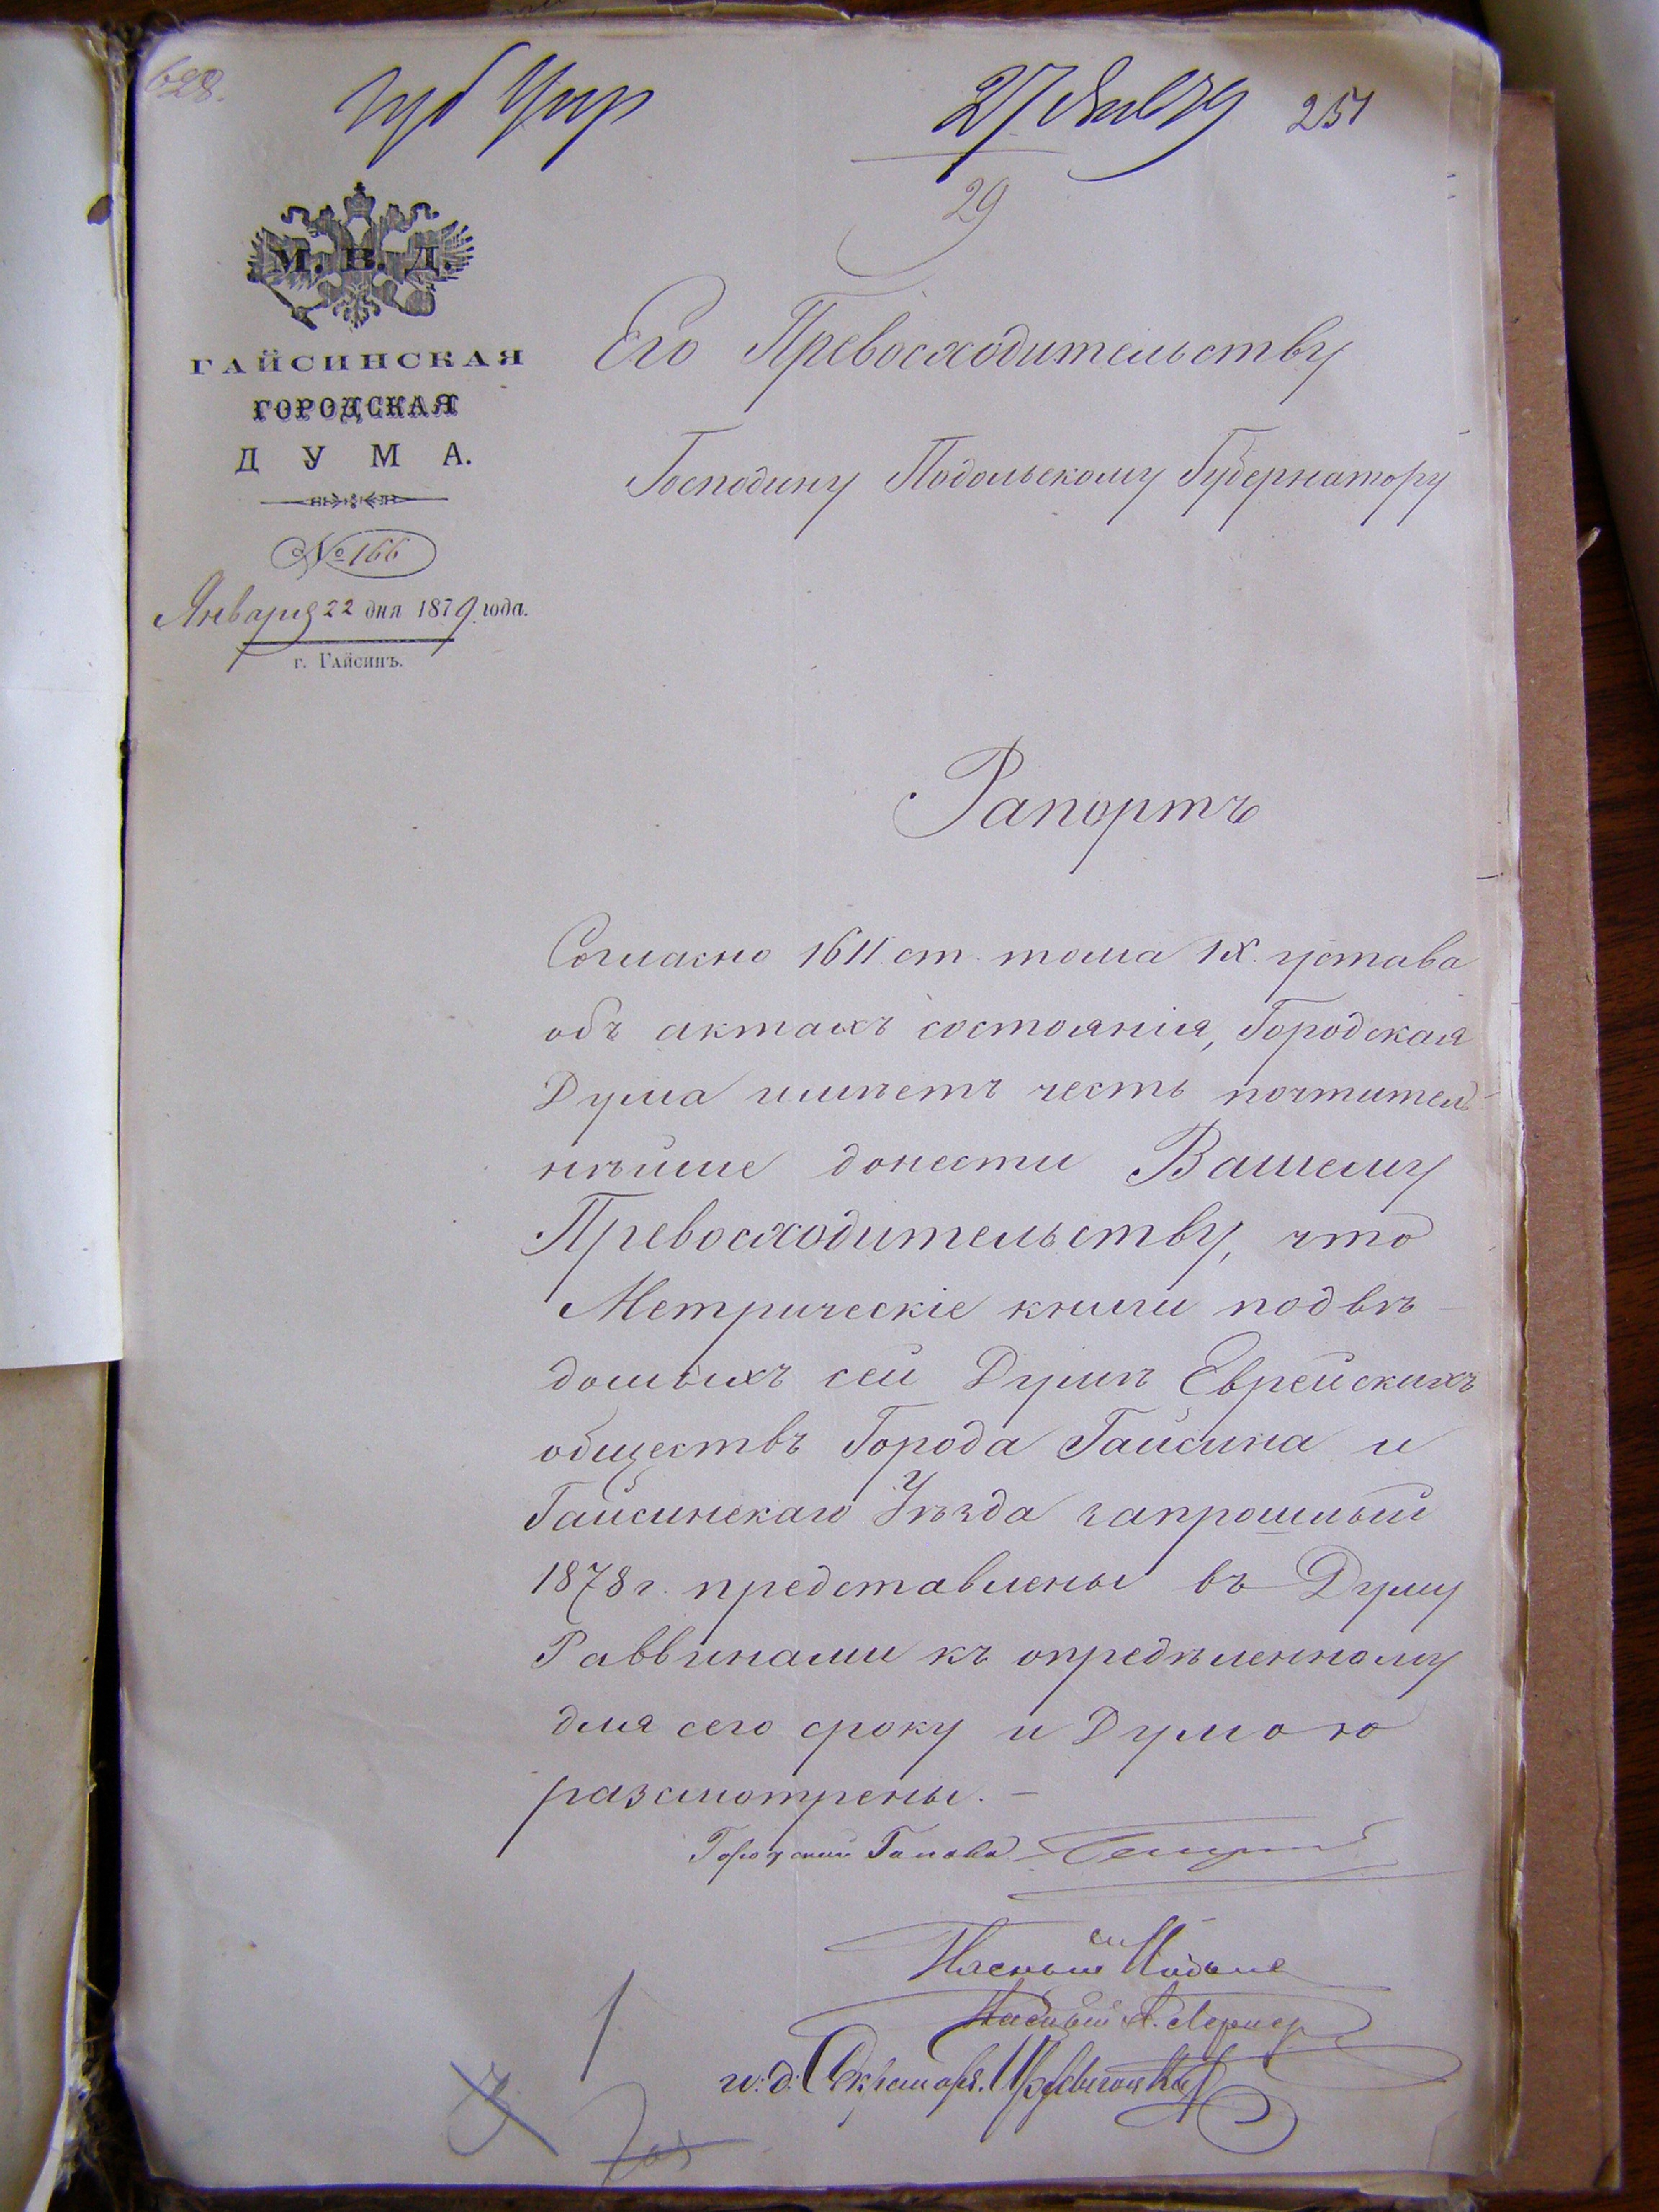 628.
Губ Упр
27 Янв 79
251
29
М. В. Д.
ГАЙСИНСКАЯ
ГОРОДСКАЯ
ДУМА.
№ 166
Января 22 дня 1879 года.
г. Гайсинъ.
Его Превосходительству
Господину Подольскому Губернатору
Рапортъ
Согласно 1611 ст. тома IX. устава
объ актахъ состоянія, Городская
Дума имѣетъ честь почтитель
нѣйше донести Вашему
Превосходительству, что
Метрическіе книги подвѣ-
домыхъ сей Думѣ Еврейскихъ
обществъ Города Гайсина и
Гайсинскаго Уѣзда запрошлый
1878 г. представлены въ Думу
Раввинами къ опредѣленному
для сего сроку и Думою
разсмотрены. –
Городский Голова
Гласный
Гласный Лернер
и: д: Секретаря.